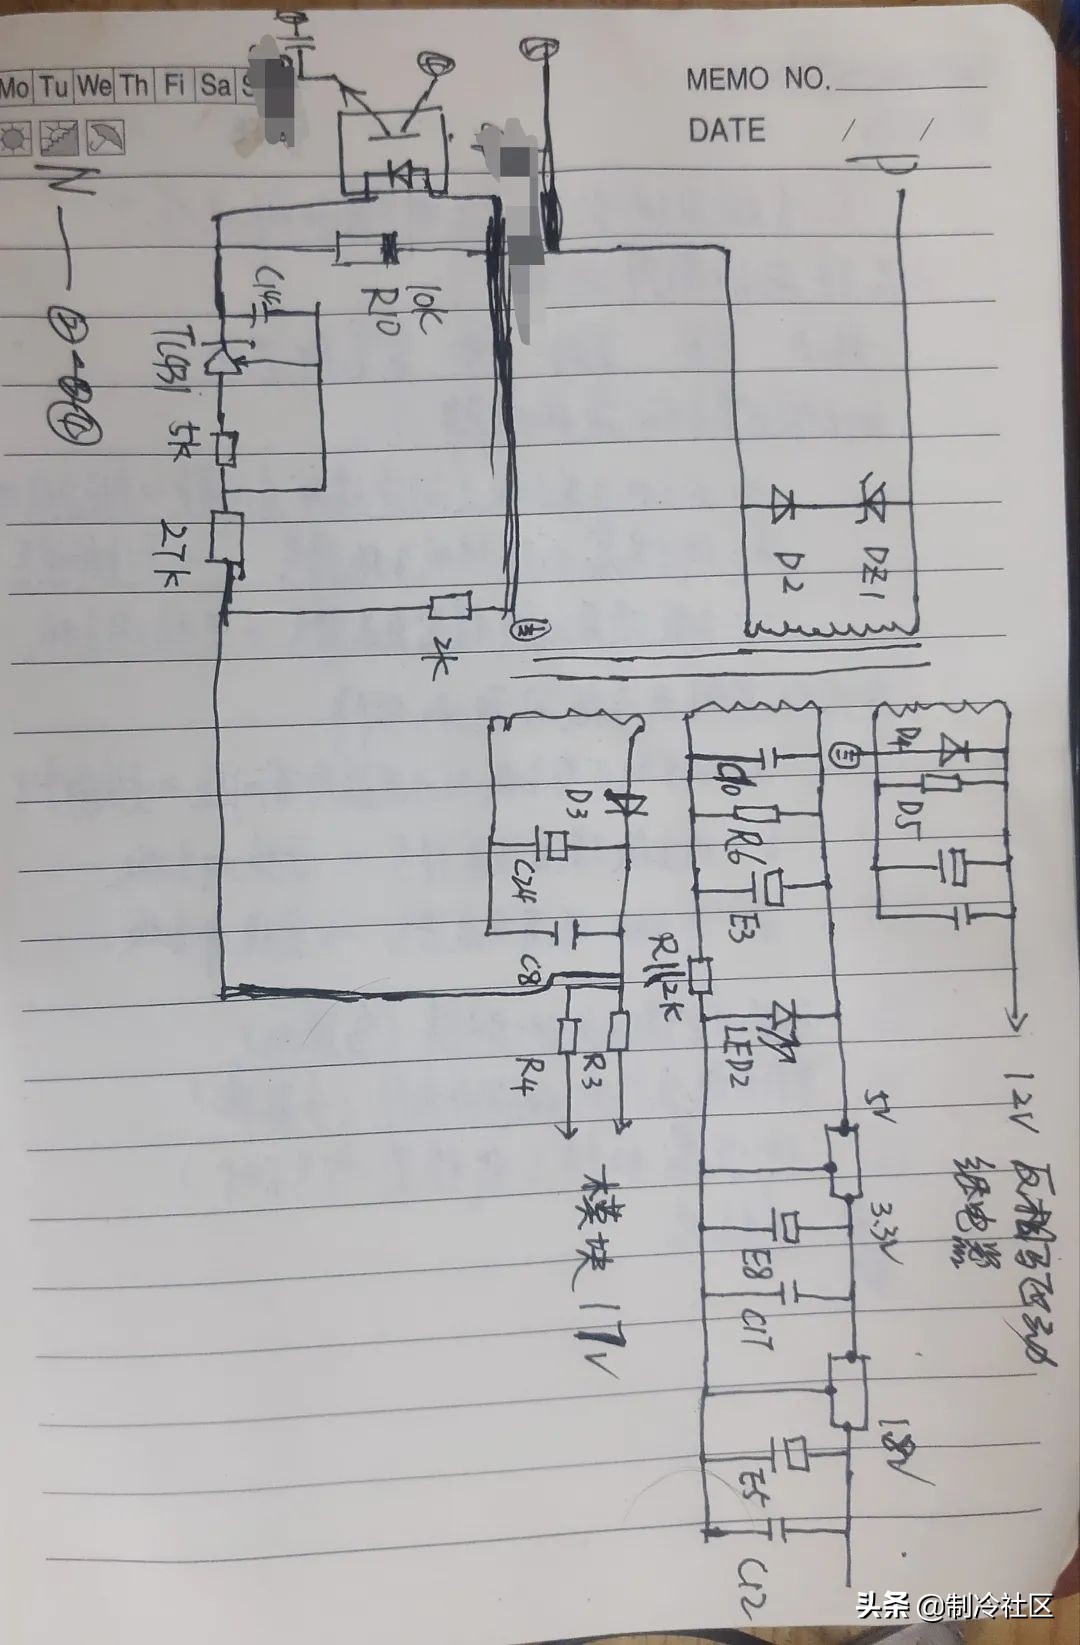 Mo Tu We Th Fi Sa S
MEMO NO.
DATE / /
N
P
10k
R10
C14
TL431
5k
27k
2k
DZ1
D2
D4
D5
D3
C24
C8
R4
R3
R6
E3
R11 2K
LED2
5V
3.3V
1.8V
E8
C17
E5
C12
12V
继电器
模块 17V
头条 @制冷社区